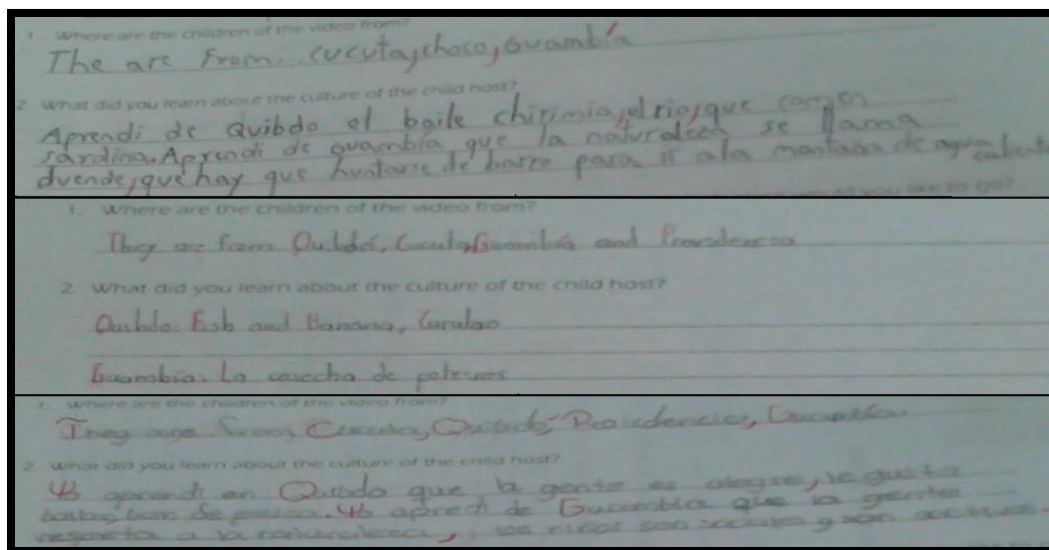 1. Where are the children of the video from?
The are From.. cucuta, choco, Guambía
2. What did you learn about the culture of the child host?
Aprendi de Quibdo el baile chirimia, el rio, que comen
sardina. Aprendi de guambia, que la naturaleza se llama
duende, que hay que huntarse de barro para ir ala montaña de agua
you like to go?
1. Where are the children of the video from?
They are from Quibdó, Cucuta, Guambía and Providencia
2. What did you learn about the culture of the child host?
Quibdo: Fish and Banana,
Guambia: La cosecha de
1. Where are the children of the video from?
They are from Cucuta, Quibdo, Providencia,
2. What did you learn about the culture of the child host?
Yo aprendi en Quibdo que la gente es alegre, le gusta
Yo aprendi de Guambia que la gente
respeta a la naturaleza, los niños son y son